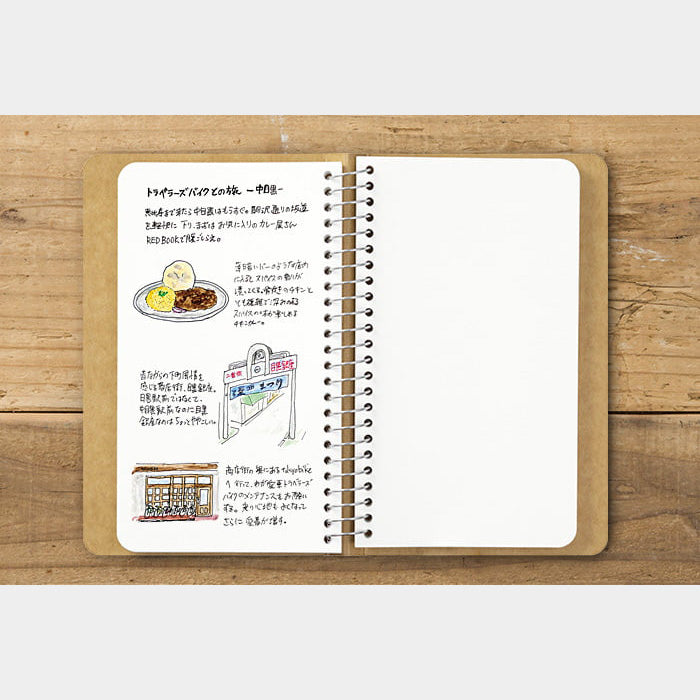 トラベラーズバイクとの旅 ー中目黒ー
恵比寿まで来たら中目黒はもうすぐ。駒沢通りの坂道
を軽快に下り、まずはお気に入りのカレー屋さん
RED BOOKで腹ごしらえ。
薄暗いバーのような店内
に入るとスパイスの香りが
漂ってくる。骨付きのチキンと
とても複雑で深みのある
スパイスの味が楽しめる
チキンカレー。
昔ながらの下町風情を
感じる商店街、目黒銀座。
目黒駅前ではなくて、
中目黒駅前なのに目黒
銀座なのはちょっとややこしい。
目黒銀座
まつり
商店街の奥にあるtokyobike
へ行って、わが愛車トラベラーズ
バイクのメンテナンスをお願い
する。乗り心地もよくなって
さらに愛着が増す。